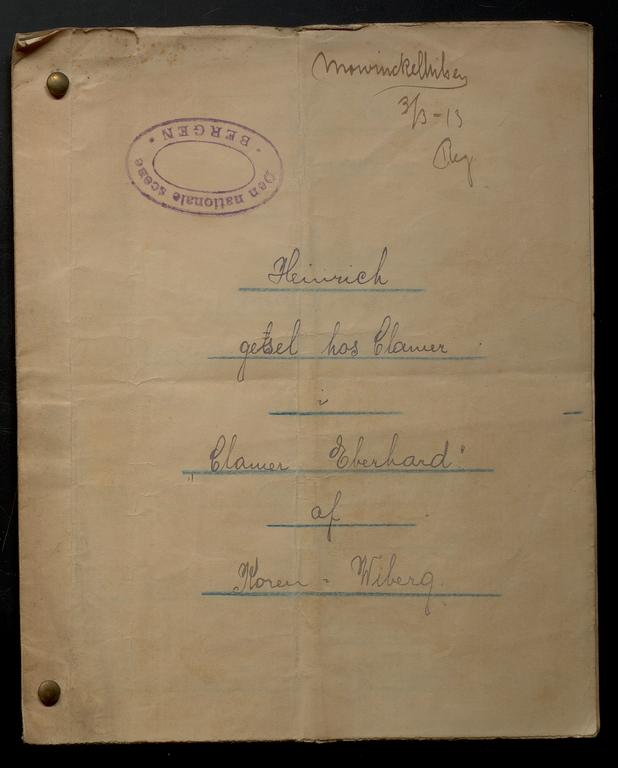 3/3-13
Den nationale scene
• BERGEN •
Heinrich
getsel hos Clamer
i
„Clamer Eberhard"
af
Koren - Wiberg.